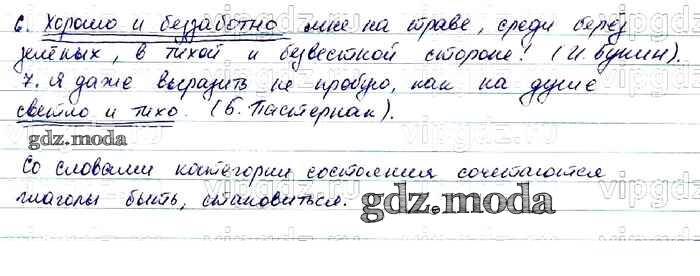 6. Хорошо и беззаботно мне на траве, среди берёз
зелёных, в тихой и безвестной стороне! (И. Бунин).
7. Я даже выразить не пробую, как на душе
светло и тихо. (Б. Пастернак).
gdz.moda
Со словами категории состояния сочетаются
глаголы быть, становиться.
gdz.moda